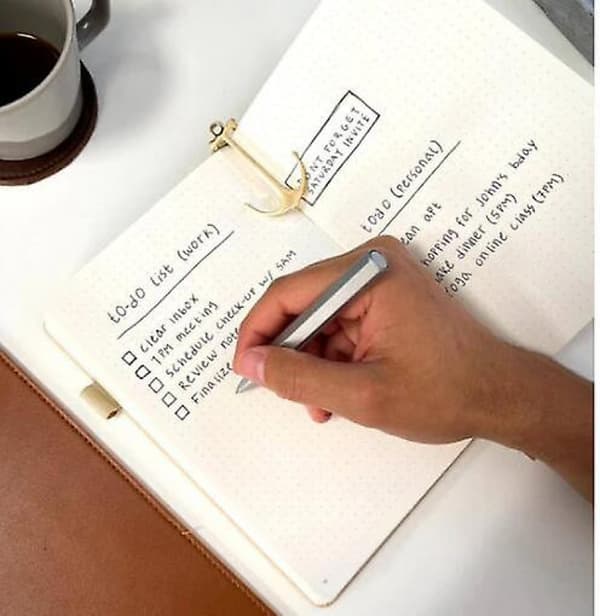 to-do list (work)
clear inbox
1PM meeting
schedule check-up w/ SAM
Review note
Finalize
DONT FORGET
SATURDAY INVITE
to-do (personal)
apt
hopping for John's bday
dinner (5PM)
yoga online class (7PM)